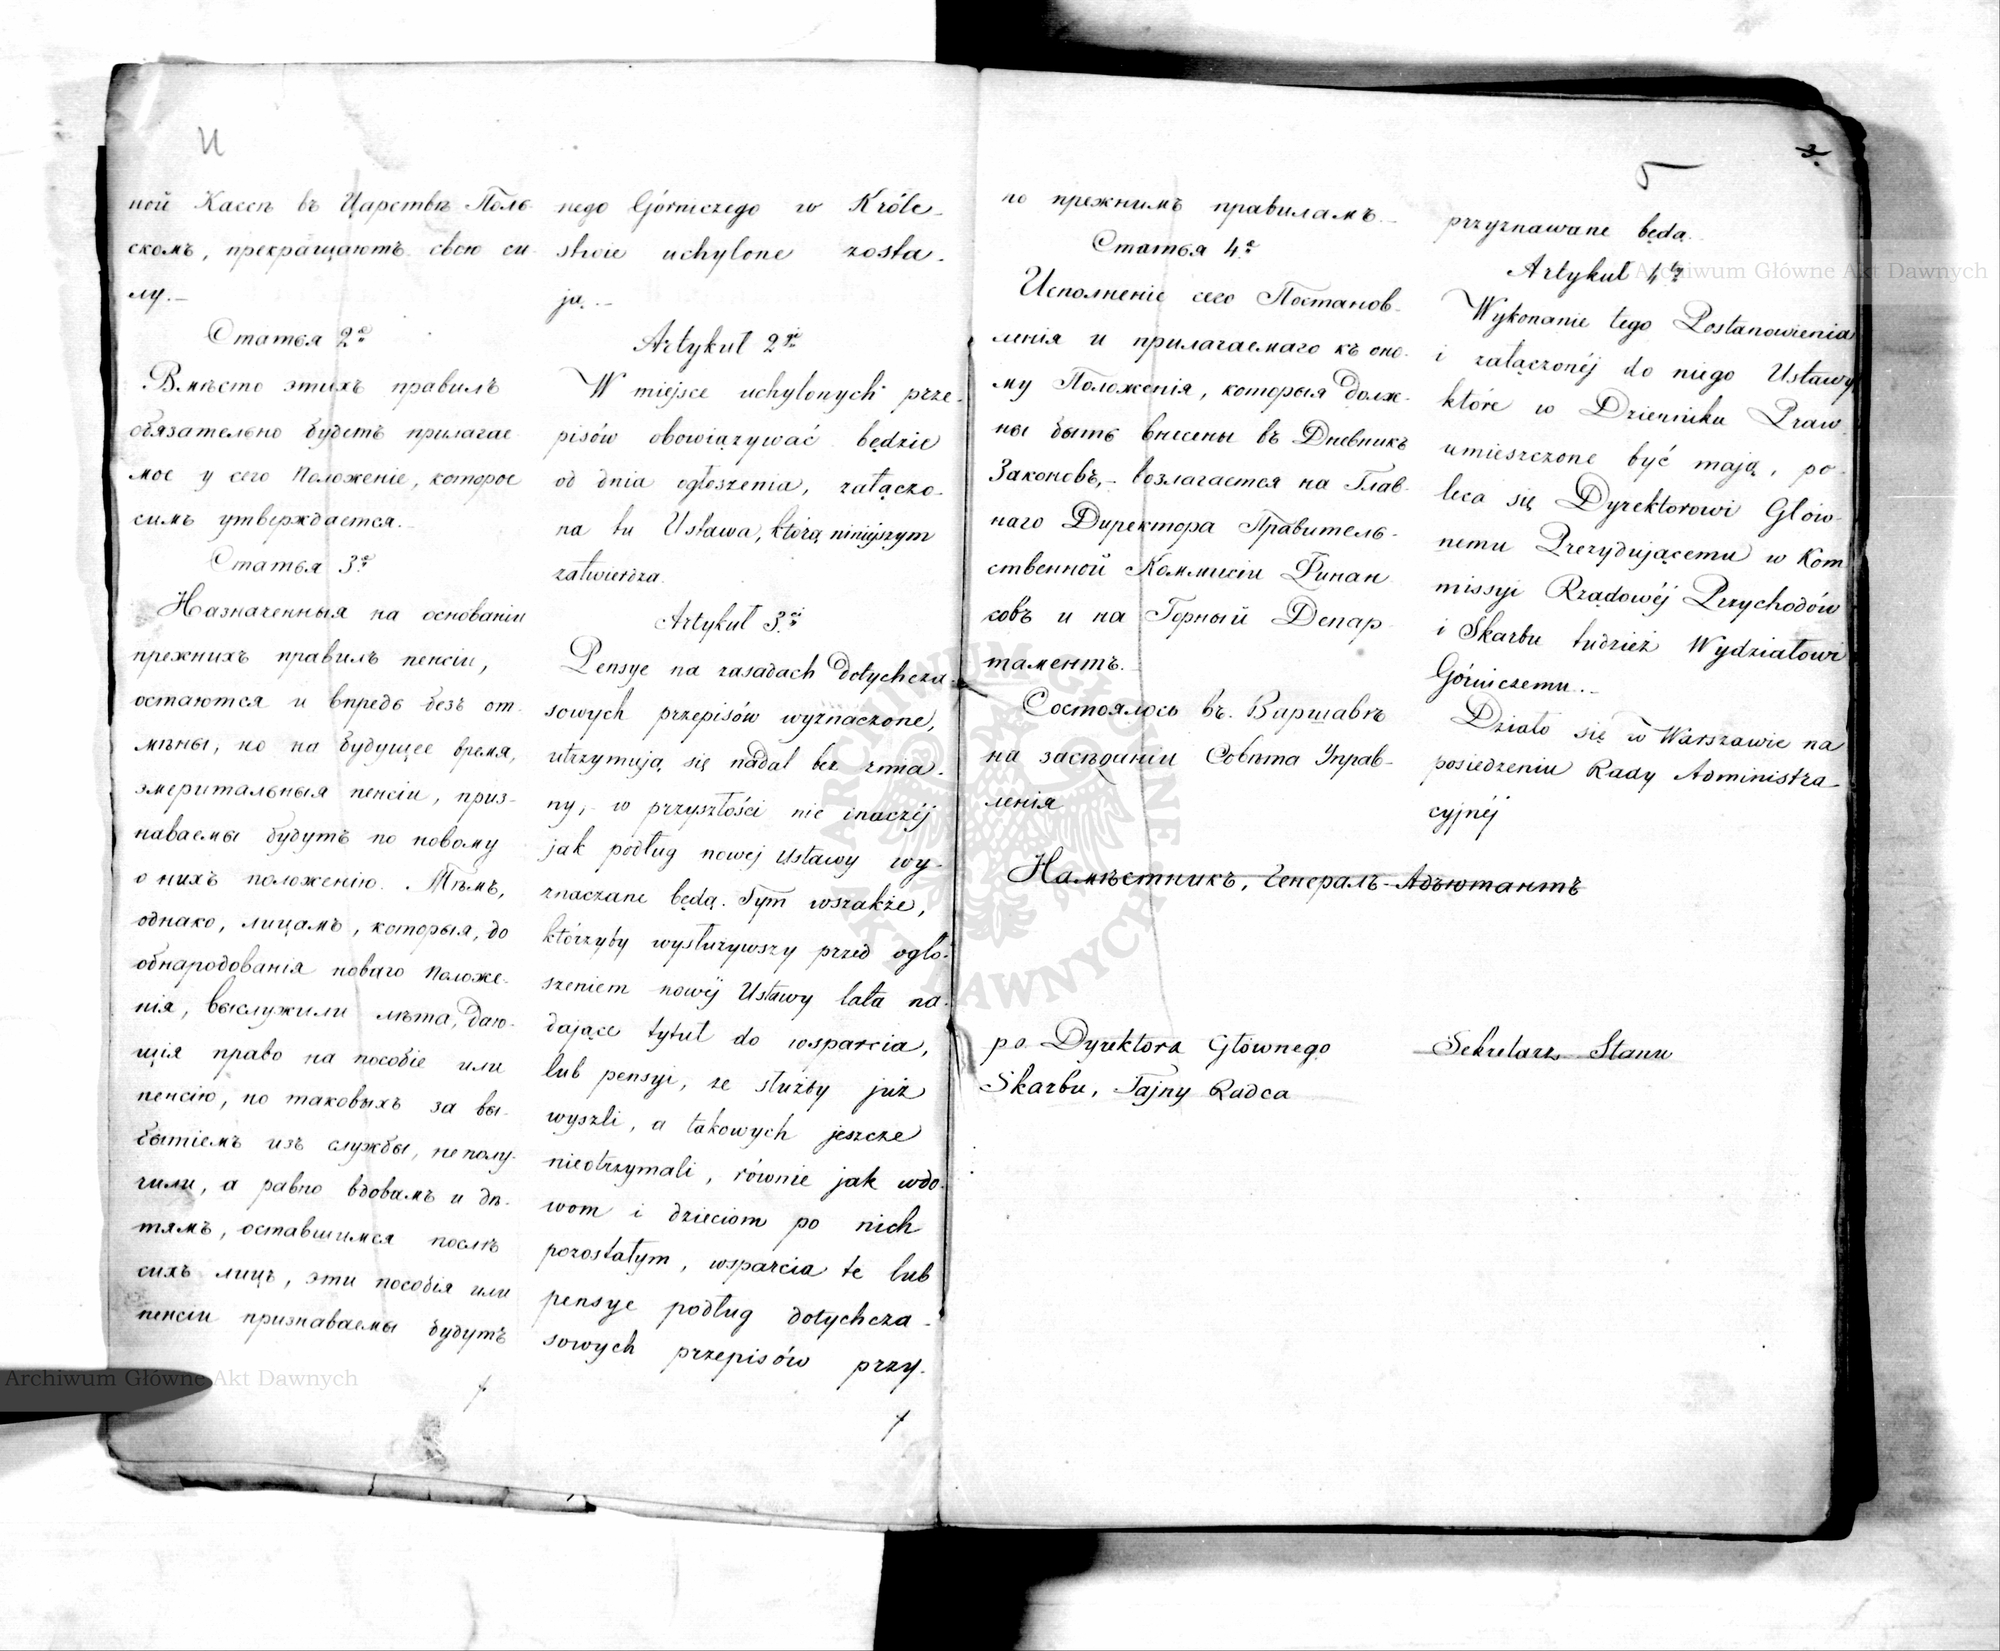 И
ной Кассѣ въ Царствѣ Поль-
скомъ, прекращаютъ свою си-
лу.—
Статья 2я
Вмѣсто этихъ правилъ
обязательно будетъ прилагае-
мое у сего Положеніе, которое
симъ утверждается.
Статья 3я
Назначенныя на основаніи
прежнихъ правилъ пенсіи,
остаются и впредь безъ от-
мѣны, но на будущее время,
эмеритальныя пенсіи, приз-
наваемы будутъ по новому
о нихъ положенію. Тѣмъ,
однако, лицамъ, которыя, до
обнародованія новаго Положе-
нія, выслужили лѣта, даю-
щія право на пособіе или
пенсію, но таковыхъ за вы-
бытіемъ изъ службы, не полу-
чили, а равно вдовамъ и дѣ-
тямъ, оставшимся послѣ
сихъ лицъ, эти пособія или
пенсіи признаваемы будутъ
nego Górniczego w Króle-
stwie uchylone zosta-
ją.—
Artykuł 2gi
W miejsce uchylonych prze-
pisów obowiązywać będzie
od dnia ogłoszenia, załączo-
na tu Ustawa, którą niniéjszym
zatwierdza.
Artykuł 3ci
Pensye na zasadach dotychcza-
sowych przepisów wyznaczone,
utrzymują się nadal bez zmia-
ny,- w przyszłości nie inaczéj
jak podług nowej Ustawy wy-
znaczane będą. Tym wszakże,
którzyby wysłużywszy przed ogło-
szeniem nowéj Ustawy lata na-
dające tytuł do wsparcia,
lub pensyi, ze służby już
wyszli, a takowych jeszcze
nieotrzymali, równie jak wdo-
wom i dzieciom po nich
pozostałym, wsparcia te lub
pensye podług dotychcza-
sowych przepisów przy-
3.
5
по прежнимъ правиламъ.—
Статья 4я
Исполненіе сего Постанов-
ленія и прилагаемаго къ оно-
му Положенія, которыя долж-
ны быть внесены въ Дневникъ
Законовъ,- возлагается на Глав-
наго Директора Правитель-
ственной Коммисіи Финан
совъ и на Горный Депар-
таментъ.—
Состоялось въ Варшавѣ
на засѣданіи Совѣта Управ-
ленія
przyznawane będą.—
Artykuł 4ty
Wykonanie tego Postanowienia
i załączonéj do niego Ustawy
które w Dzienniku Praw
umieszczone być mają, po-
leca się Dyrektorowi Głów-
nemu Prezydującemu w Kom
missyi Rządowéj Przychodów
i Skarbu tudzież Wydziałowi
Górniczemu.—
Działo się w Warszawie na
posiedzeniu Rady Administra-
cyjnéj
Намѣстникъ, Генералъ-Адъютантъ
p.o. Dyrektora Głównego
Skarbu, Tajny Radca
Sekretarz Stanu
Archiwum Główne Akt Dawnych
Archiwum Główne Akt Dawnych
ARCHIWUM GŁÓWNE AKT DAWNYCH